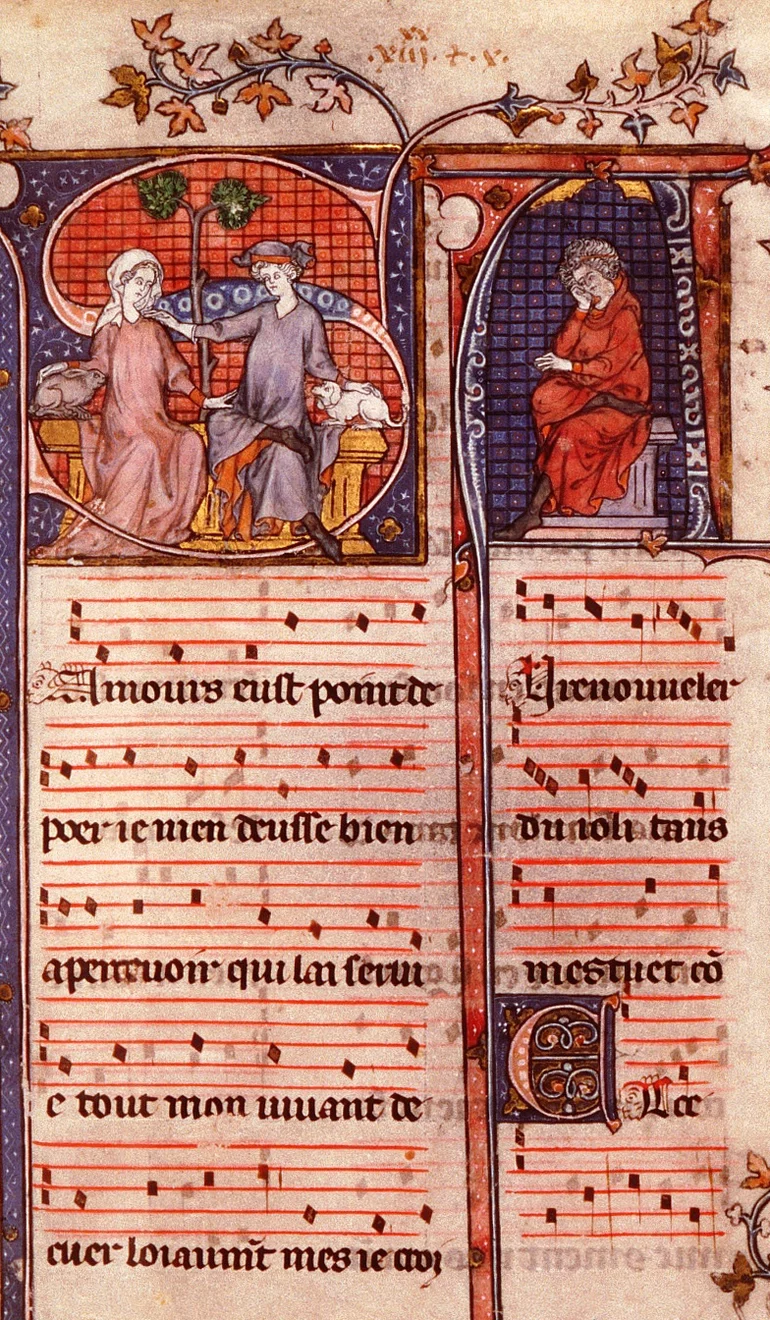 SAmours eust point de
poer ie men deusse bien
aperceuoir qui lai serui
e tout mon uiuant de
cuer loiaum̃t mes ie croi
AU renouueler
du ioli tans
mestuet cõ
ECce